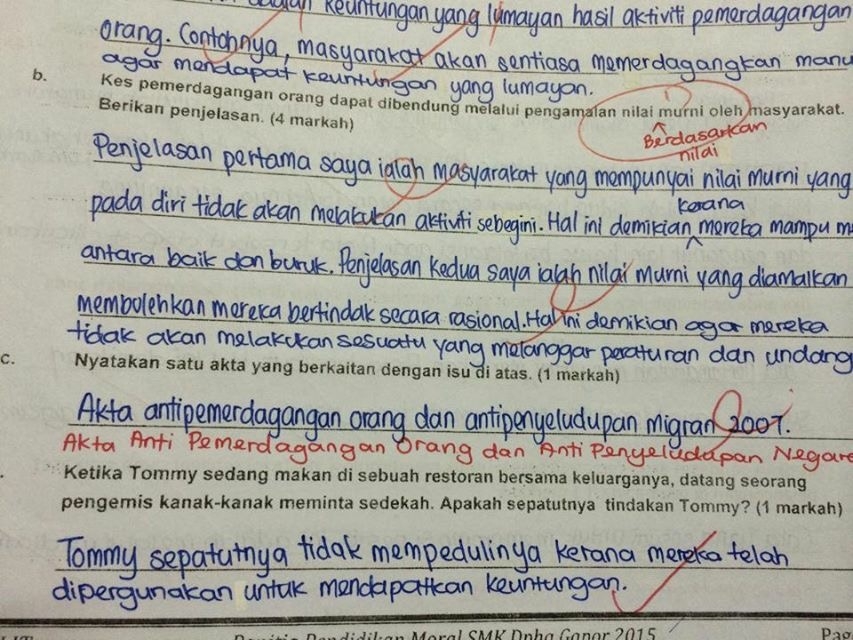 keuntungan yang lumayan hasil aktiviti pemerdagangan
orang. Contohnya, masyarakat akan sentiasa memerdagangkan manu
agar mendapat keuntungan yang lumayan.
b. Kes pemerdagangan orang dapat dibendung melalui pengamalan nilai murni oleh masyarakat.
Berikan penjelasan. (4 markah)
Berdasarkan
nilai
Penjelasan pertama saya ialah masyarakat yang mempunyai nilai murni yang
pada diri tidak akan melakukan aktiviti sebegini. Hal ini demikian kerana mereka mampu m
antara baik dan buruk. Penjelasan kedua saya ialah nilai murni yang diamalkan
membolehkan mereka bertindak secara rasional. Hal ini demikian agar mereka
tidak akan melakukan sesuatu yang melanggar peraturan dan undang
c. Nyatakan satu akta yang berkaitan dengan isu di atas. (1 markah)
Akta antipemerdagangan orang dan antipenyeludupan migran 2007.
Akta Anti Pemerdagangan Orang dan Anti Penyeludupan Negara
Ketika Tommy sedang makan di sebuah restoran bersama keluarganya, datang seorang
pengemis kanak-kanak meminta sedekah. Apakah sepatutnya tindakan Tommy? (1 markah)
Tommy sepatutnya tidak mempedulinya kerana mereka telah
dipergunakan untuk mendapatkan keuntungan.
Pendidikan Moral SMK 2015